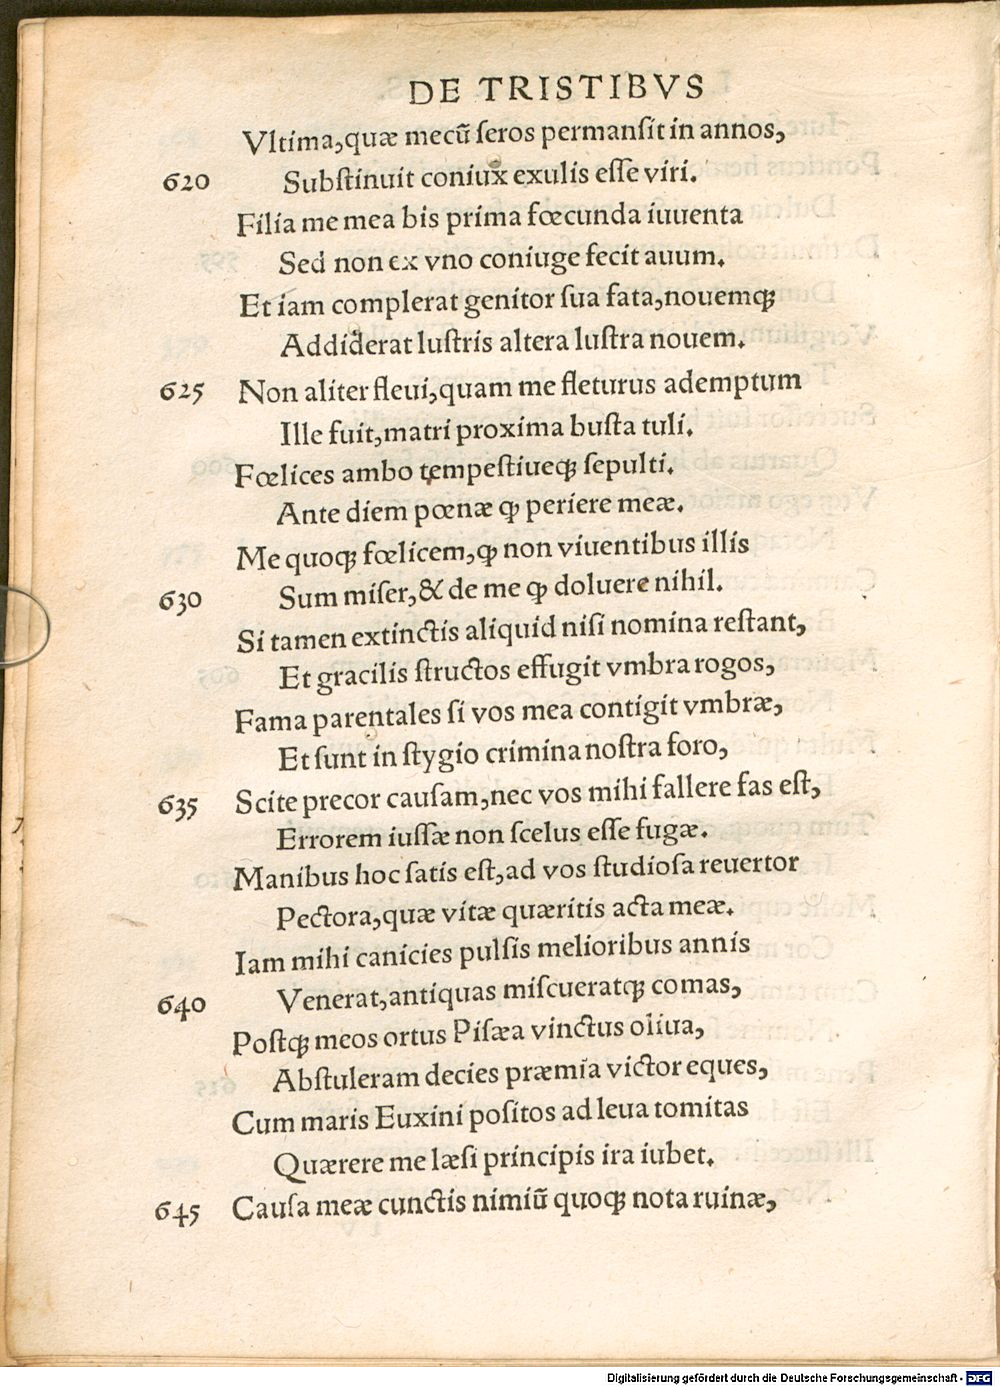 DE TRISTIBVS
Vltima,quæ mecũ ſeros permanſit in annos,
620 Subſtinuit coniux exulis eſſe viri.
Filia me mea bis prima fœcunda iuuenta
Sed non ex vno coniuge fecit auum.
Et iam complerat genitor ſua fata,nouemq;
Addiderat luſtris altera luſtra nouem.
625 Non aliter fleui,quam me fleturus ademptum
Ille fuit,matri proxima buſta tuli.
Fœlices ambo tempeſtiueq; ſepulti.
Ante diem pœnæ ꝙ periere meæ.
Me quoq; fœlicem,ꝙ non viuentibus illis
630 Sum miſer,& de me ꝙ doluere nihil.
Si tamen extinctis aliquid niſi nomina reſtant,
Et gracilis ſtructos effugit vmbra rogos,
Fama parentales ſi vos mea contigit vmbræ,
Et ſunt in ſtygio crimina noſtra foro,
635 Scite precor cauſam,nec vos mihi fallere fas eſt,
Errorem iuſſæ non ſcelus eſſe fugæ.
Manibus hoc ſatis eſt,ad vos ſtudioſa reuertor
Pectora,quæ vitæ quæritis acta meæ.
Iam mihi canicies pulſis melioribus annis
640 Venerat,antiquas miſcueratq; comas,
Poſtq; meos ortus Piſæa vinctus oliua,
Abſtuleram decies præmia victor eques,
Cum maris Euxini poſitos ad leua tomitas
Quærere me læſi principis ira iubet.
645 Cauſa meæ cunctis nimiũ quoq; nota ruinæ,
Digitalisierung gefördert durch die Deutsche Forschungsgemeinschaft - DFG